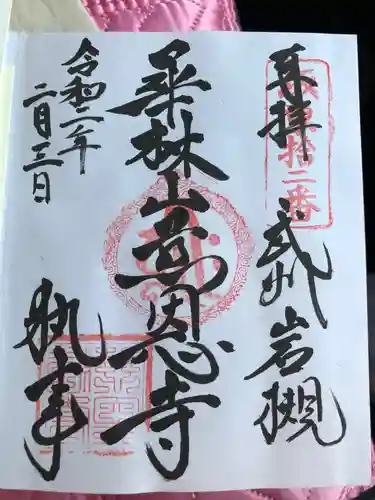 奉拝 武州岩槻
坂東拾二番
華林山慈恩寺
令和二年
二月三日
執事